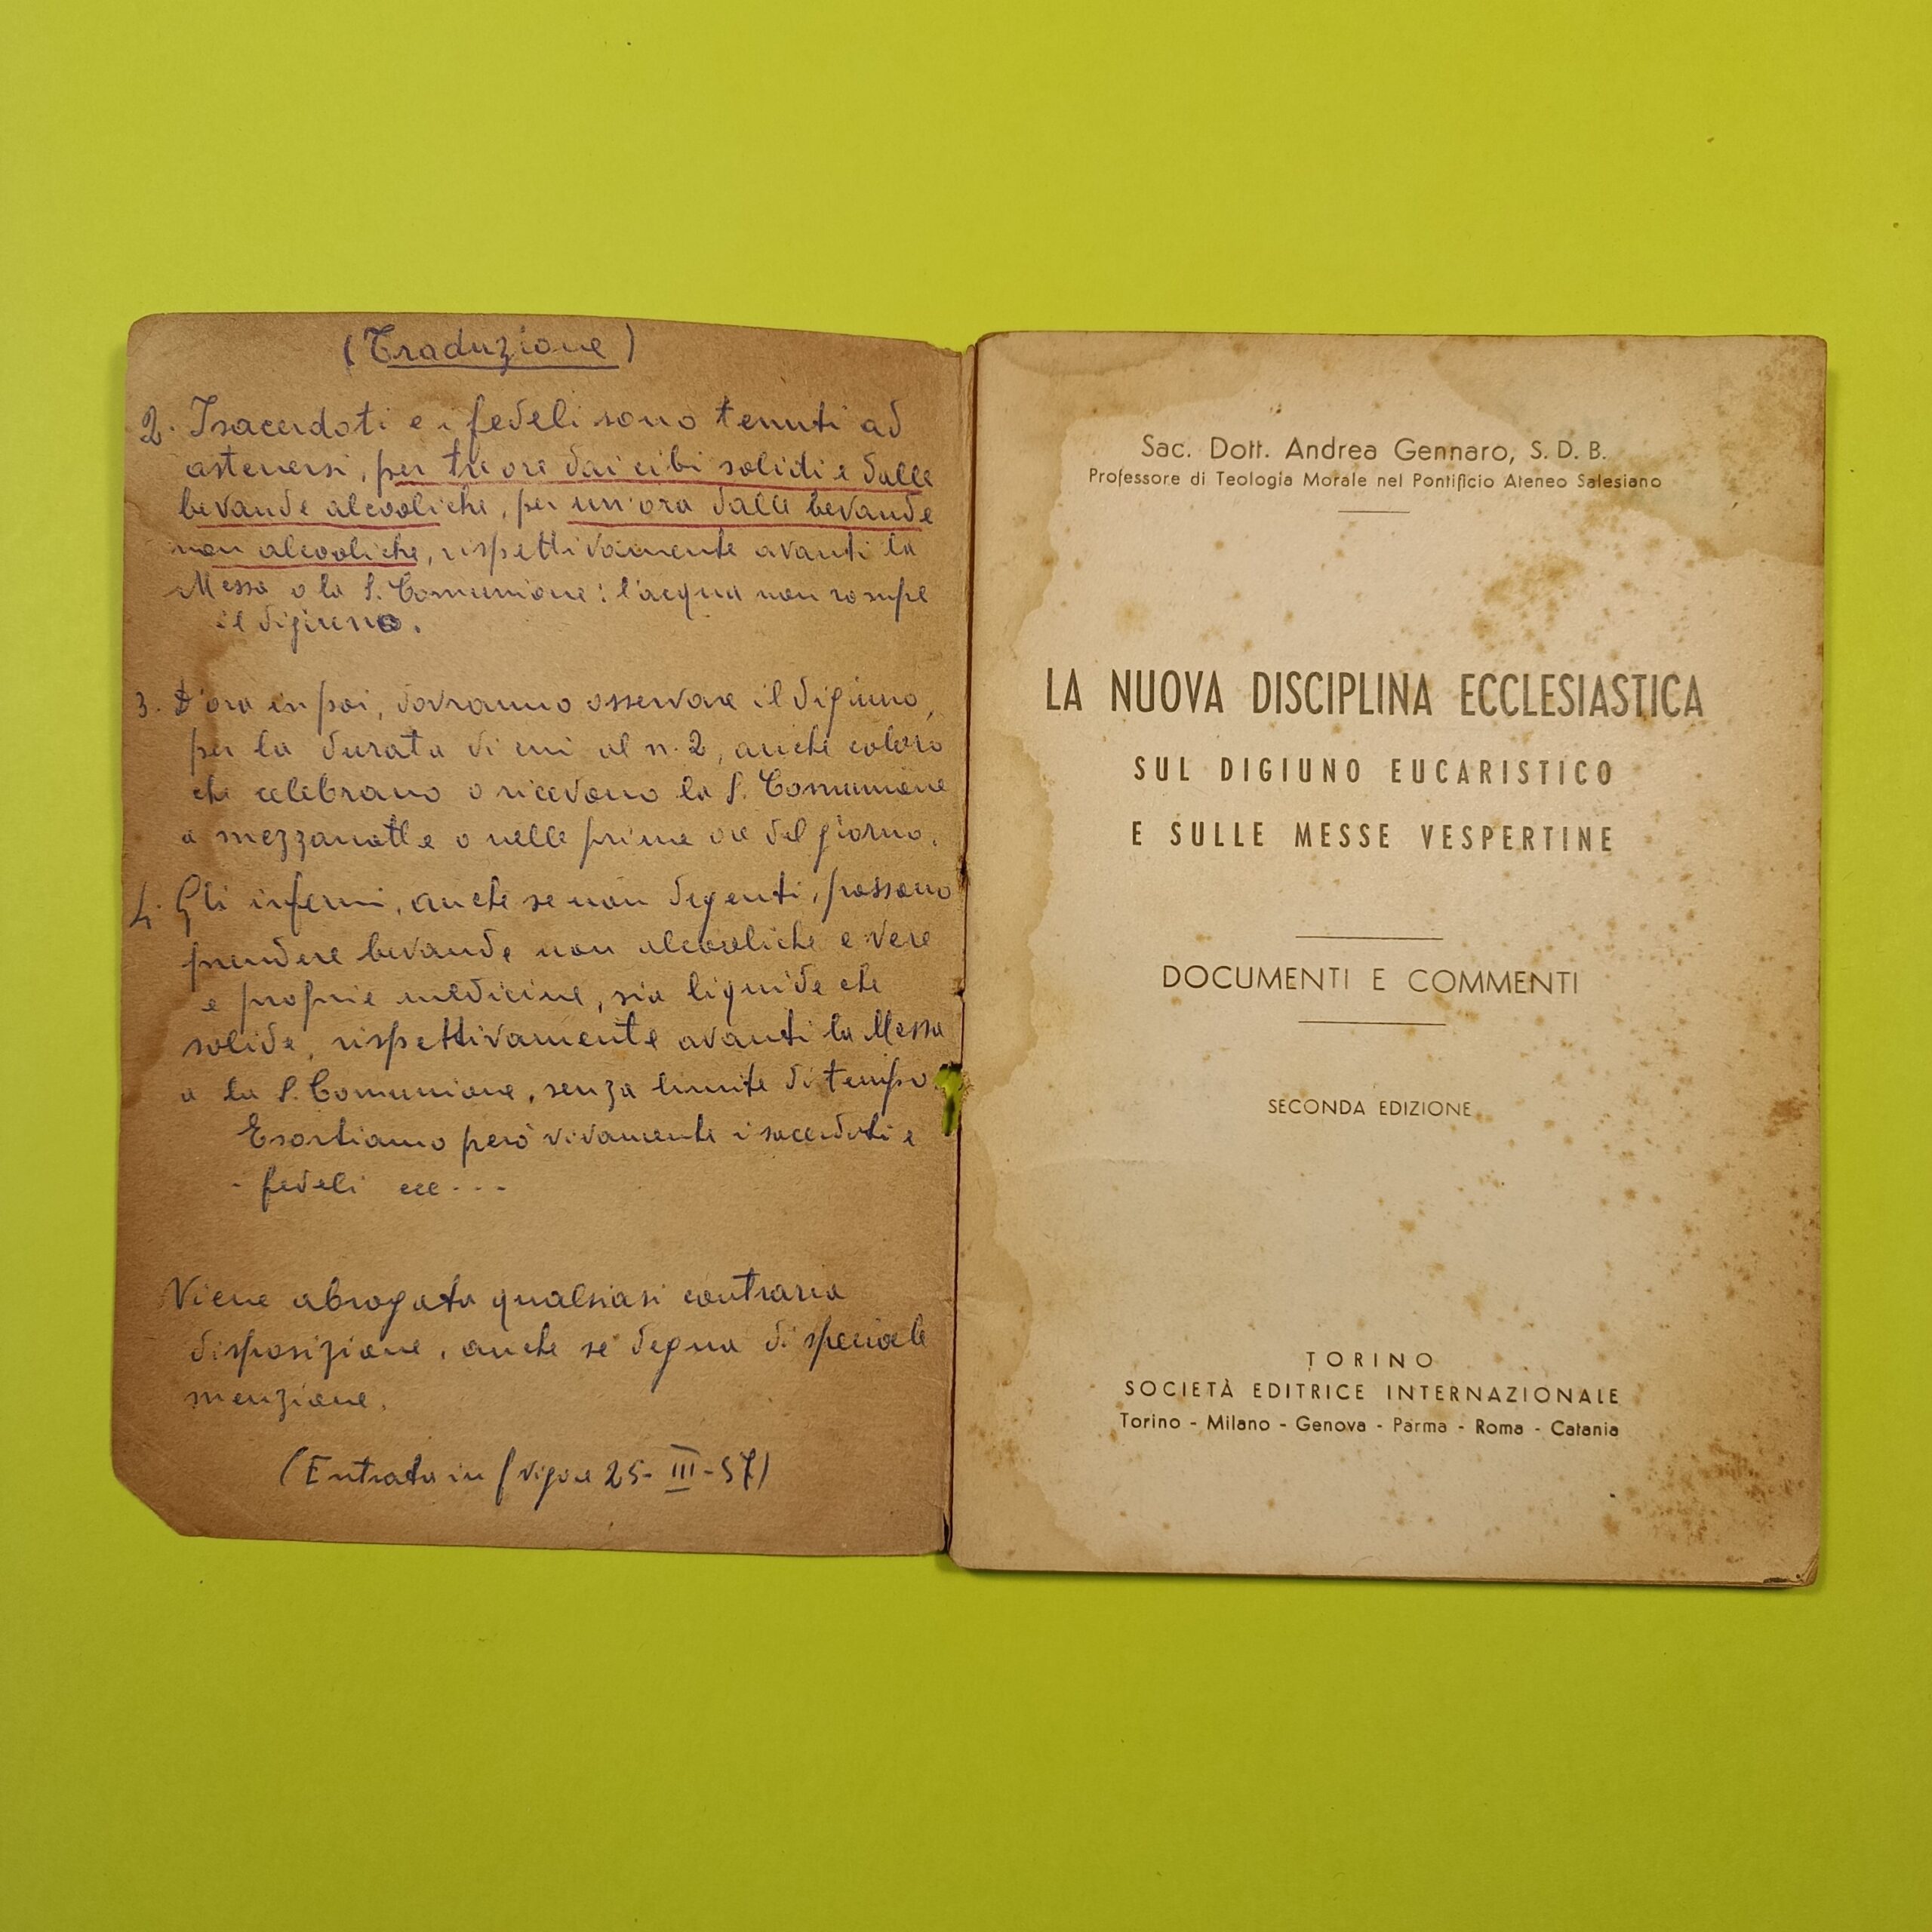 (Traduzione)
2. I sacerdoti e i fedeli sono tenuti ad
astenersi, per tre ore dai cibi solidi e dalle
bevande alcooliche, per un'ora dalle bevande
non alcooliche, rispettivamente avanti la
Messa o la S. Comunione: l'acqua non rompe
il digiuno.
3. D'ora in poi, dovranno osservare il digiuno,
per la durata di cui al n. 2, anche coloro
che celebrano o ricevono la S. Comunione
a mezzanotte o nelle prime ore del giorno.
4. Gli infermi, anche se non degenti, possono
prendere bevande non alcooliche e vere
e proprie medicine, sia liquide che
solide, rispettivamente avanti la Messa
o la S. Comunione, senza limite di tempo.
Esortiamo però vivamente i sacerdoti e
fedeli ecc - - -
Viene abrogata qualsiasi contraria
disposizione, anche se degna di speciale
menzione.
(Entrata in vigore 25-III-57)
Sac. Dott. Andrea Gennaro, S. D. B.
Professore di Teologia Morale nel Pontificio Ateneo Salesiano
LA NUOVA DISCIPLINA ECCLESIASTICA
SUL DIGIUNO EUCARISTICO
E SULLE MESSE VESPERTINE
DOCUMENTI E COMMENTI
SECONDA EDIZIONE
TORINO
SOCIETÀ EDITRICE INTERNAZIONALE
Torino - Milano - Genova - Parma - Roma - Catania